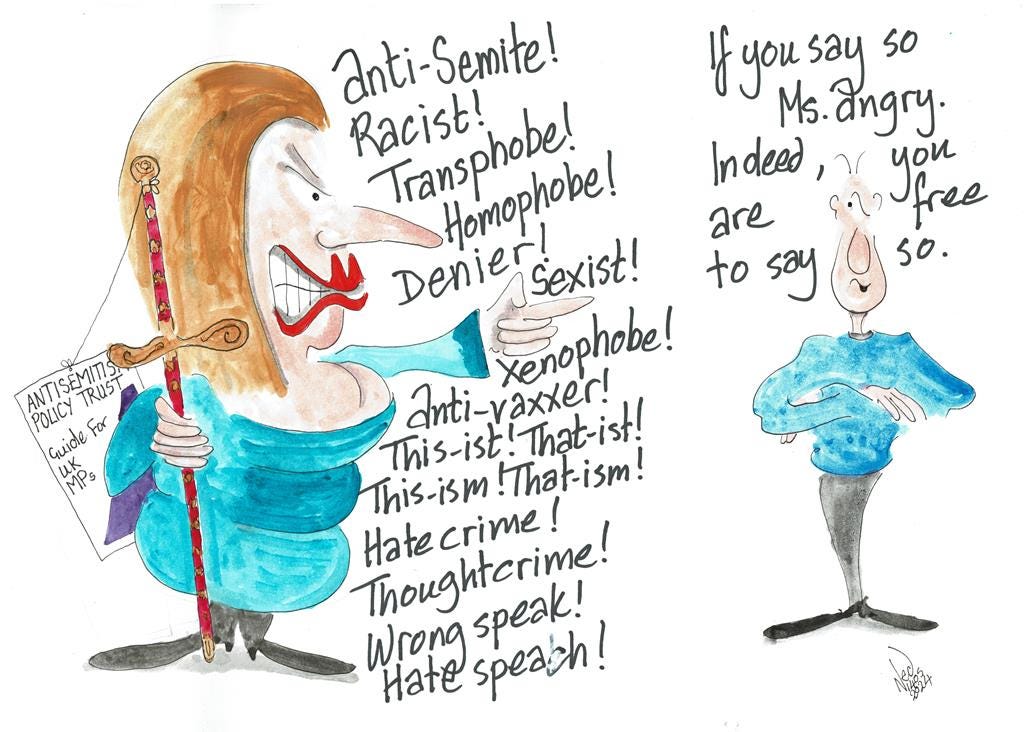 Anti-Semite!
Racist!
Transphobe!
Homophobe!
Denier!
Sexist!
Xenophobe!
Anti-vaxxer!
This-ist! That-ist!
This-ism! That-ism!
Hate crime!
Thoughtcrime!
Wrong speak!
Hate speach!
If you say so
Ms. Angry.
Indeed, you
are free
to say so.
ANTISEMITISM
POLICY TRUST
Guide For
UK
MPs